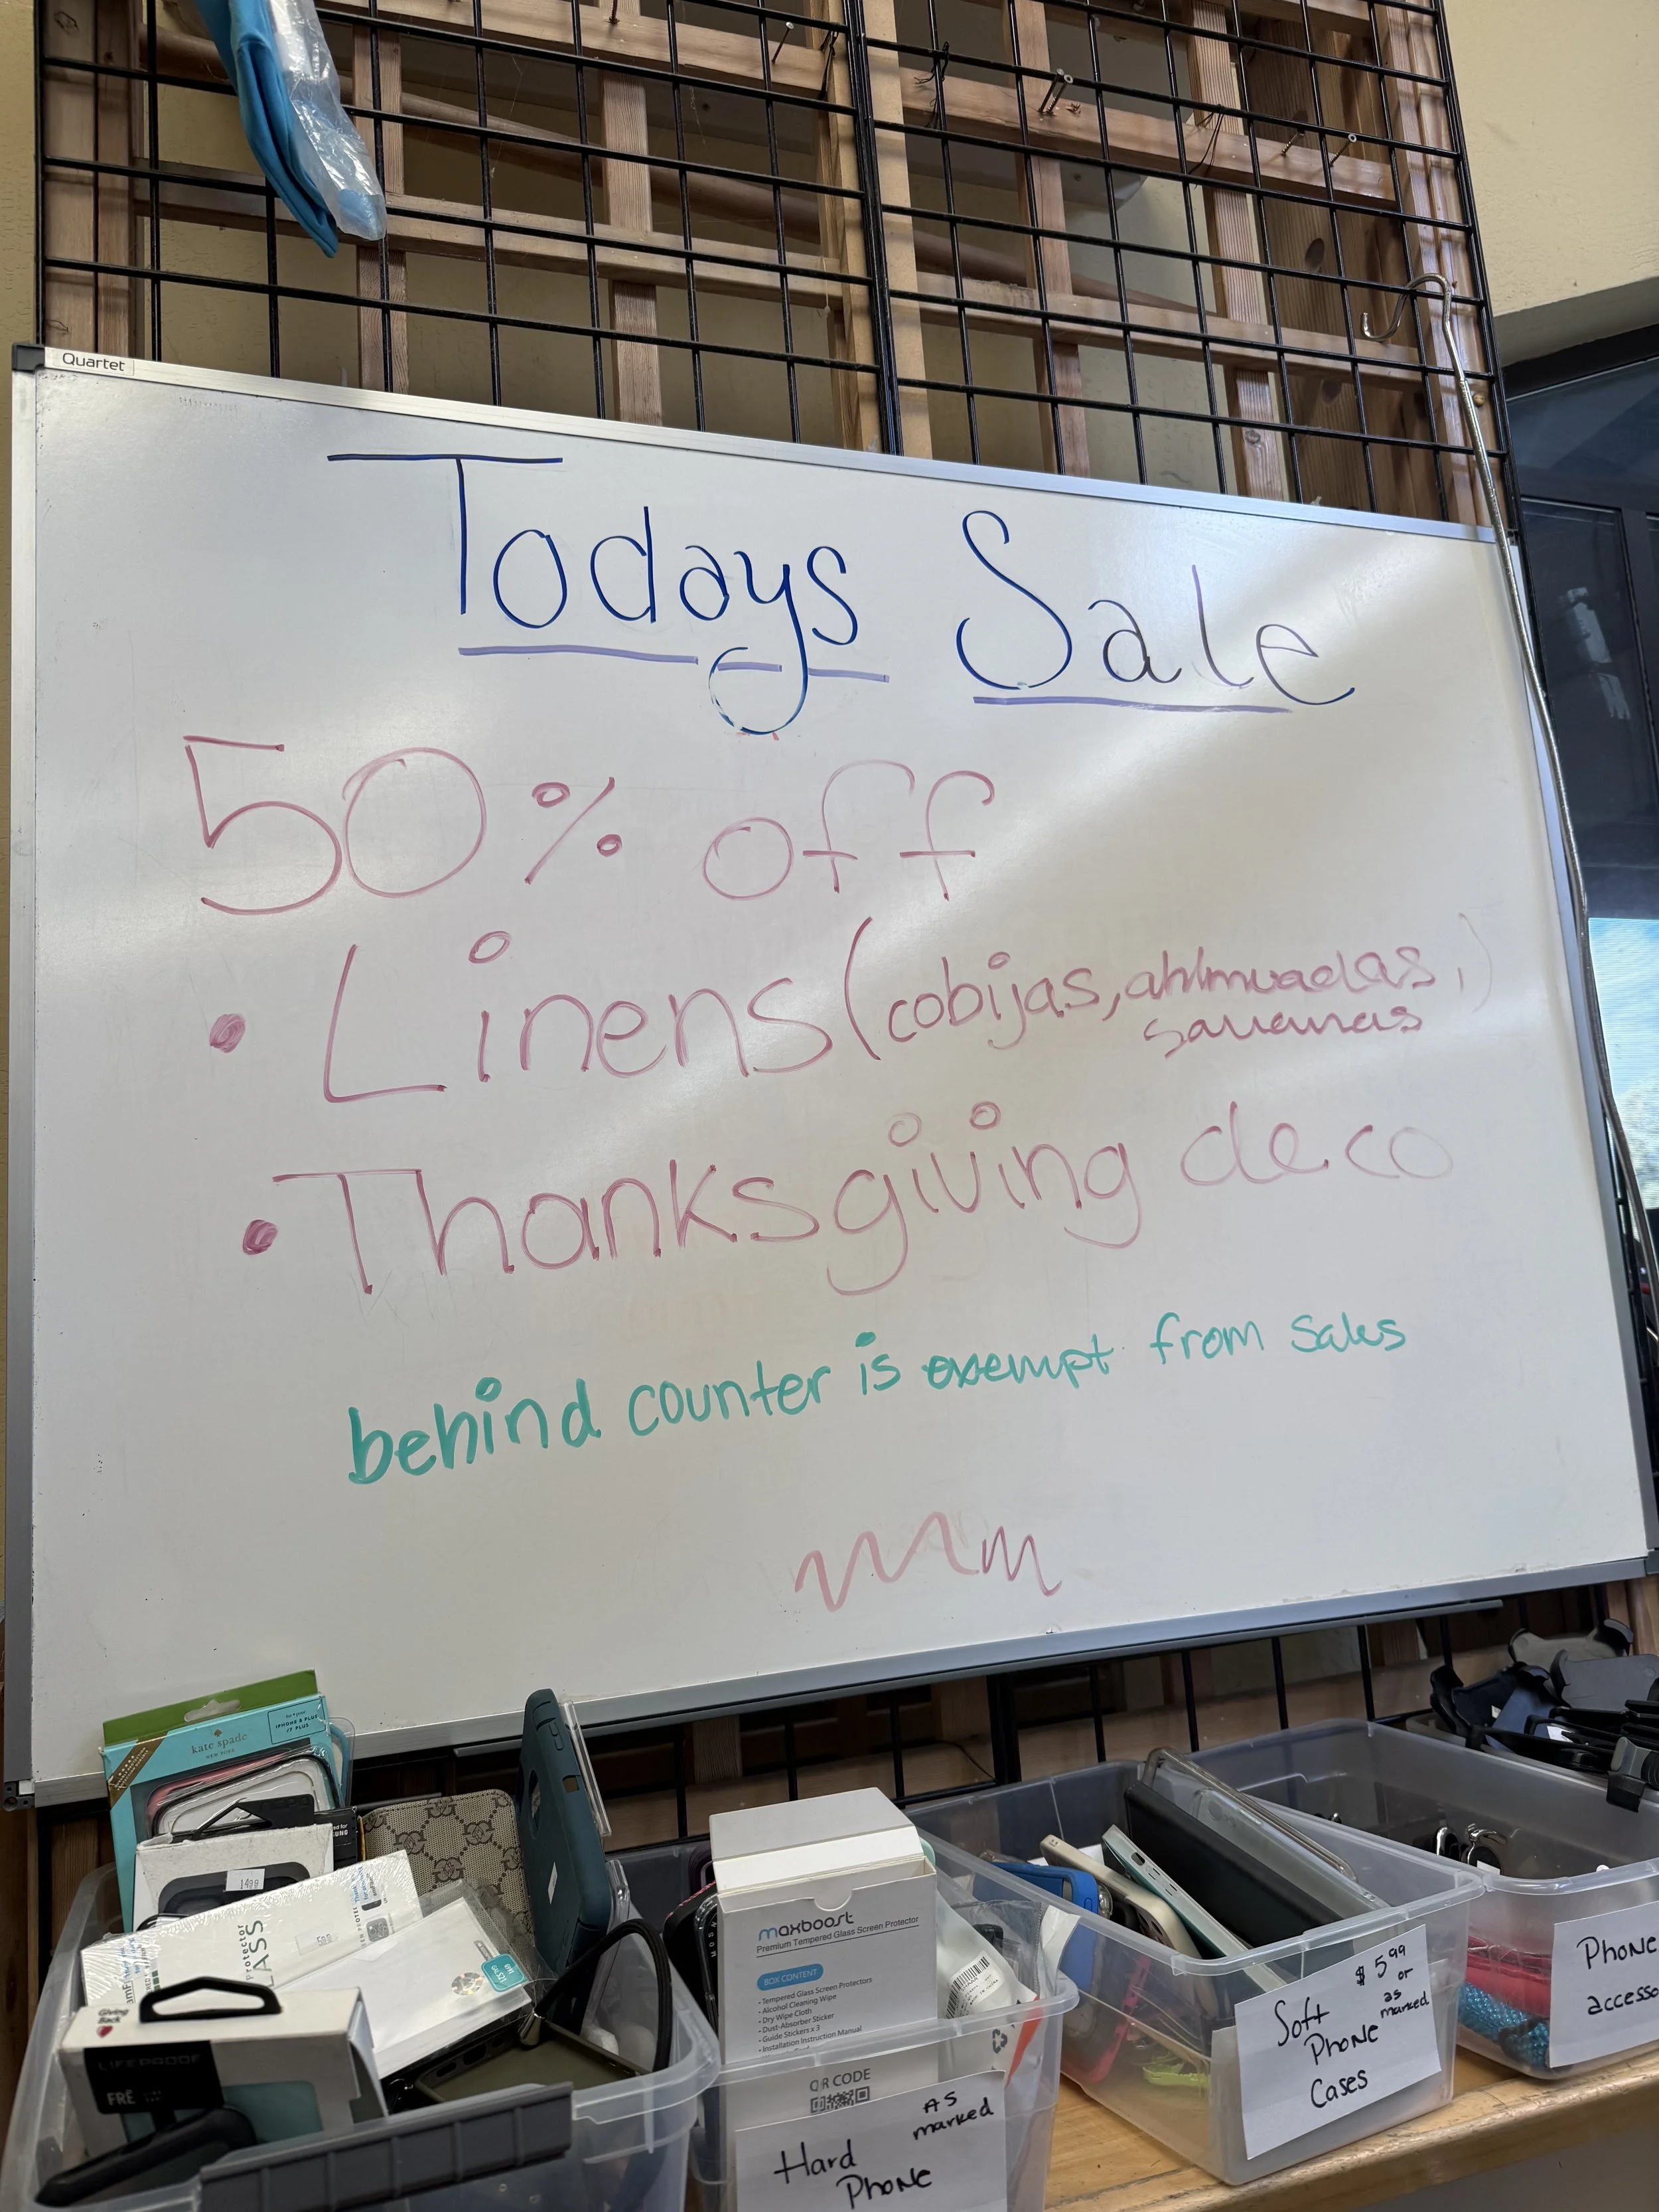 Quartet
Todays Sale
50% off
• Linens (cobijas, ahlmuadas,)
sauanas
• Thanksgiving deco
behind counter is exempt from sales
kate spade
NEW YORK
IPHONE 8 PLUS
/7 PLUS
1499
GLASS
Giving
Back
LIFEPROOF
FRĒ
maxboost
Premium Tempered Glass Screen Protector
BOX CONTENT
• Tempered Glass Screen Protectors
• Alcohol Cleaning Wipe
• Dry Wipe Cloth
• Dust-Absorber Sticker
• Guide Stickers x 3
• Installation Instruction Manual
QR CODE
AS
marked
Hard
Phone
$5.99
or
as
marked
Soft
Phone
Cases
Phone
accesso